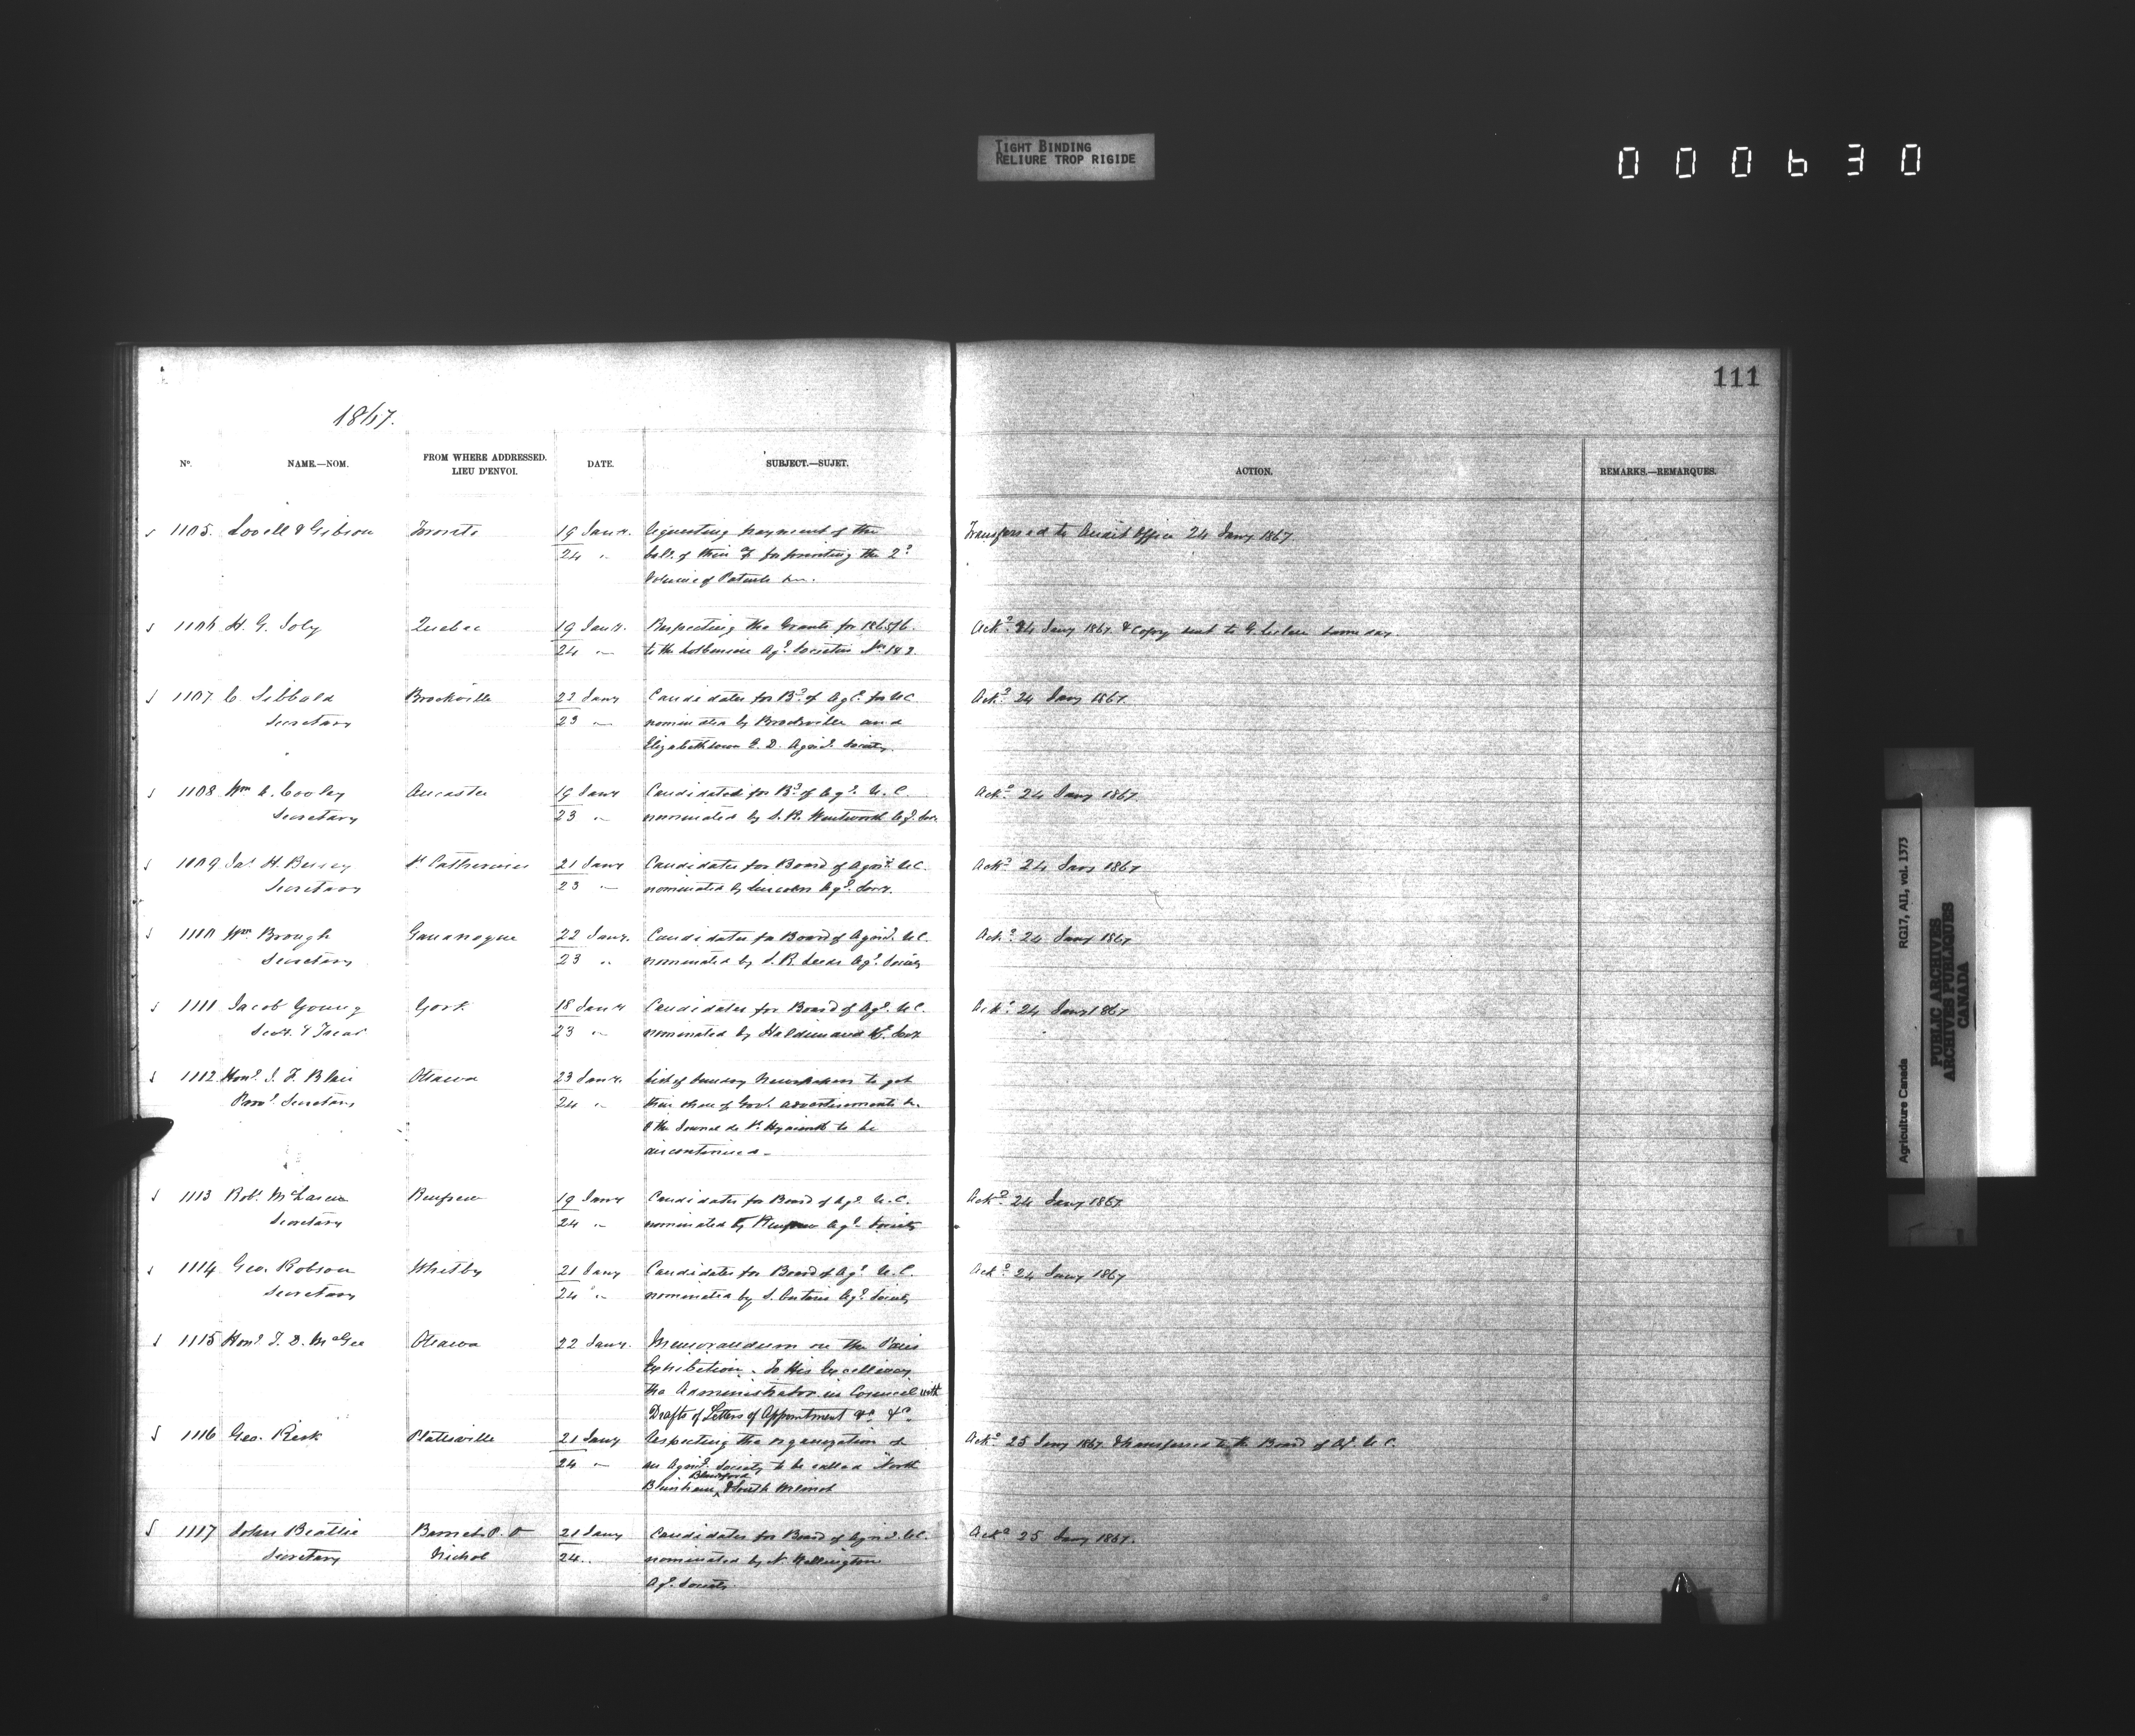 TIGHT BINDING
RELIURE TROP RIGIDE
000630
111
1867.
No. NAME.—NOM. FROM WHERE ADDRESSED. LIEU D'ENVOI. DATE. SUBJECT.—SUJET. ACTION. REMARKS.—REMARQUES.
1105. Lovell & Gibson Toronto 19 Jany. Requesting payment of the Transferred to Audit Office 24 Jany 1867.
24 " bale. of their for printing the 2d
Volume of Patents
1106 H. G. Joly Quebec 19 Jany. Respecting the Grants for 1865/6. Ackd 24 Jany 1867 & Copy sent to G. Leclere same day.
24 " to the Lotbiniere Agl. Societies Nos 1 & 2.
1107. C. Sibbald Brockville 22 Jany Candidates for Bd. of Agl. for UC Ackd 24 Jany 1867.
Secretary 23 " nominated by Brockville and
Elizabethtown E. D. Agricl. Society.
1108 Wm A. Cooley Ancaster 19 Jany Candidates for Bd. of Agl. U. C. Ackd 24 Jany 1867
Secretary 23 " nominated by S. R. Wentworth Agl. Soc.
1109 Jas H. Bessey St Catherines 21 Jany Candidates for Board of Agricl. UC. Ackd 24 Jany 1867
Secretary 23 " nominated by Lincoln Agl. Socy.
1110 Wm Brough Gananoque 22 Jany. Candidates for Board of Agricl. UC. Ackd 24 Jany 1867
Secretary 23 " nominated by S. R. Leeds Agl. Society
1111 Jacob Young York 18 Jany Candidates for Board of Agl. UC. Ackd 24 Jany 1867
Secy. & Treas 23 " nominated by Haldimand Agl. Socy
1112 Honl. Blair Ottawa 23 Jany. List of Sundry Newspapers to get
Provl. Secretary 24 " their share of Govt. advertisements &c.
& the Journal de St. Hyacinth to be
discontinued.
1113 Robt. McLaren Renfrew 19 Jany Candidates for Board of Agl. U. C. Ackd 24 Jany 1867
Secretary 24 " nominated by Renfrew Agl. Society
1114 Geo. Robson Whitby 21 Jany Candidates for Board of Agl. U. C. Ackd 24 Jany 1867
Secretary 24 " nominated by S. Ontario Agl. Society
1115 Honl. T. D. McGee Ottawa 22 Jany. Memorandum on the Paris
Exhibition. To His Excellency
the Administrator in Council with
Drafts of Letters of Appointment &c. &c.
1116 Geo. Risk Plattsville 21 Jany Respecting the organization of Ackd 25 Jany 1867. & transferred to the Board of Agl. U. C.
24 " an Agricl. Society to be called North
Blenheim, Blandford & South Wilmot
1117 John Beattie Barnet P. O 21 Jany Candidates for Board of Agricl. UC. Ackd 25 Jany 1867.
Secretary Nichol 24. nominated by N. Wellington
Agl. Society.
Agriculture Canada RG17, AII, vol. 1373
PUBLIC ARCHIVES
ARCHIVES PUBLIQUES
CANADA